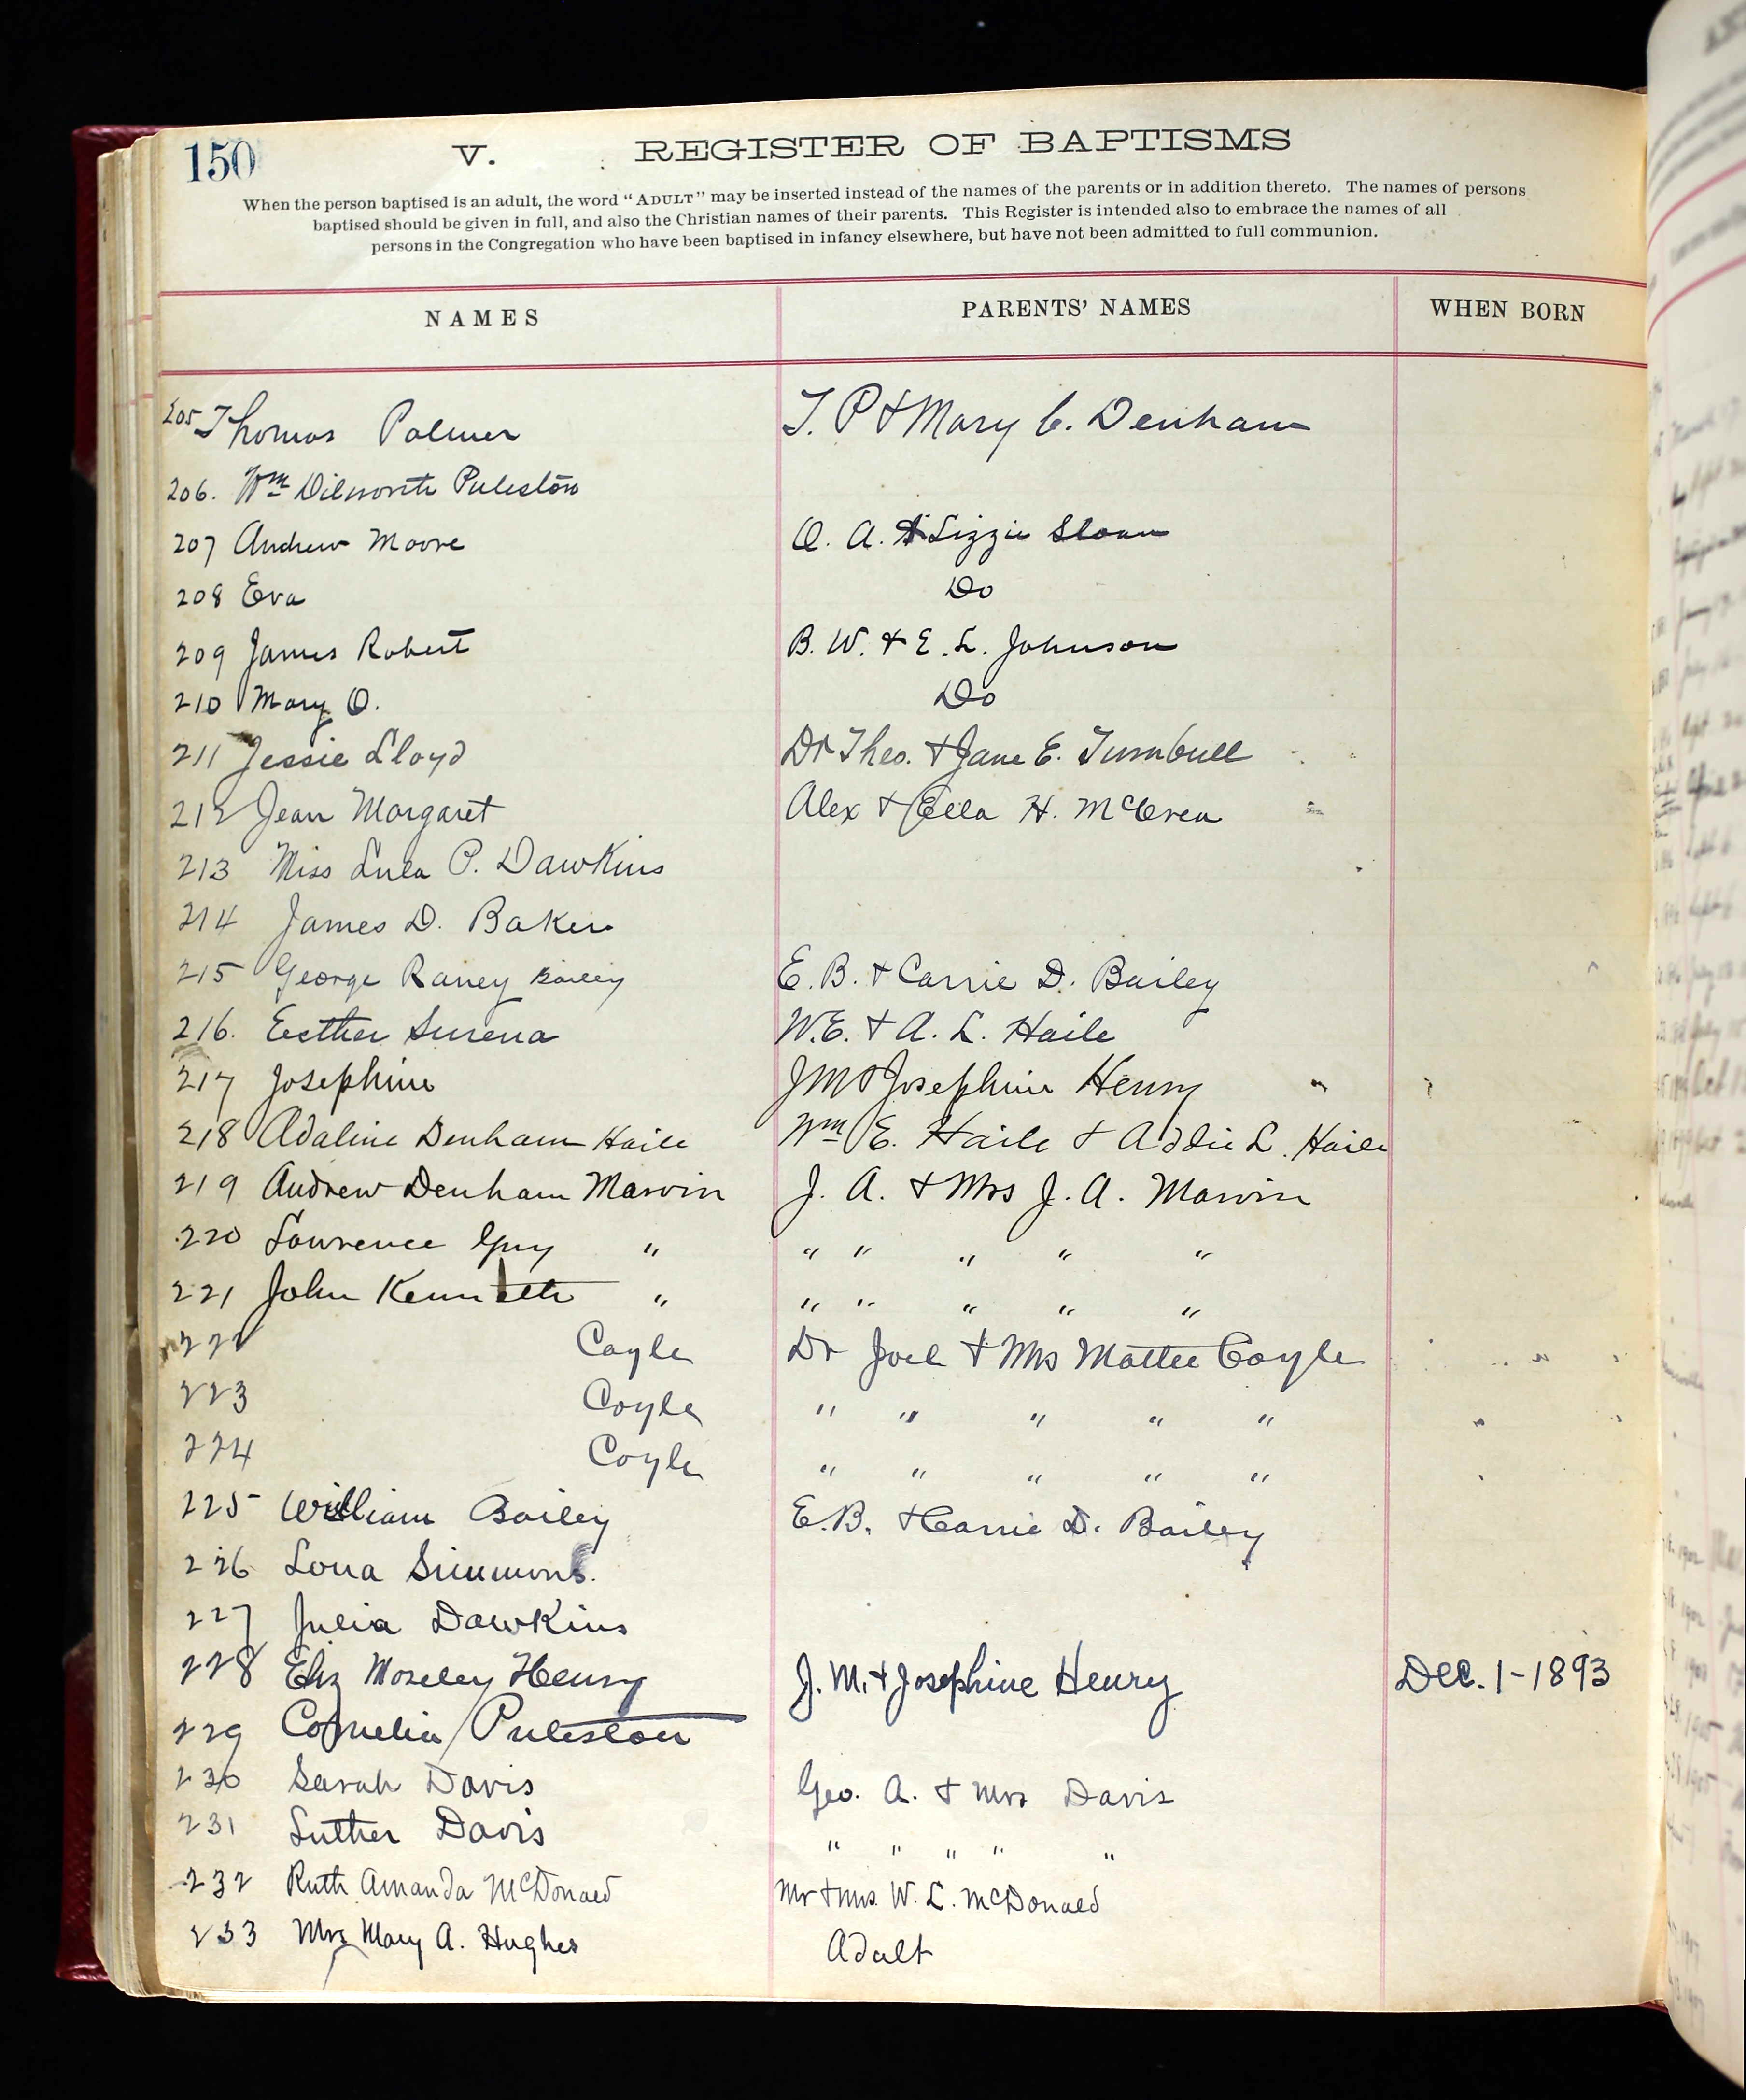 150 V. REGISTER OF BAPTISMS
When the person baptised is an adult, the word "ADULT" may be inserted instead of the names of the parents or in addition thereto. The names of persons
baptised should be given in full, and also the Christian names of their parents. This Register is intended also to embrace the names of all
persons in the Congregation who have been baptised in infancy elsewhere, but have not been admitted to full communion.
NAMES PARENTS' NAMES WHEN BORN
205 Thomas Palmer T. P & Mary C. Denham
206. Wm Dilworth Puleston
207 Andrew Moore O. A. & Lizzie Sloan
208 Eva Do
209 James Robert B. W. & E. L. Johnson
210 Mary O. Do
211 Jessie Lloyd Dr Theo. & Jane E. Turnbull
212 Jean Margaret Alex & Ella H. McCrea
213 Miss Lula P. Dawkins
214 James D. Baker
215 George Raney Bailey E. B. & Carrie D. Bailey
216. Eesther Surena W. E. & A. L. Haile
217 Josephine J M & Josephine Henry
218 Adaline Denham Haile Wm E. Haile & Addie L. Haile
219 Andrew Denham Marvin J. A. & Mrs J. A. Marvin
220 Lawrence Guy " " " " " "
221 John Kenneth " " " " " "
222 Coyle Dr Joel & Mrs Mattie Coyle
223 Coyle " " " " "
224 Coyle " " " " "
225 William Bailey E. B. & Carrie D. Bailey
226 Lona Simmons.
227 Julia Dawkins
228 Eliz Moseley Henry J. M. & Josephine Henry Dec. 1-1893
229 Cornelia Puleston
230 Sarah Davis Geo. A. & Mrs Davis
231 Luther Davis " " " " "
232 Ruth Amanda McDonald Mr & Mrs. W. L. McDonald
233 Mrs Mary A. Hughes Adult